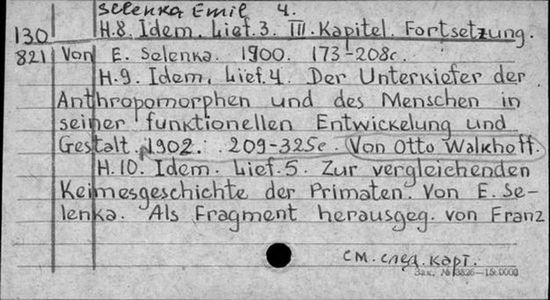 Selenka Emil 4.
130 H.8. Idem. Lief.3. III. Kapitel. Fortsetzung.
821 Von E. Selenka. 1900. 173-208c.
H.9. Idem. Lief.4. Der Unterkiefer der
Anthropomorphen und des Menschen in
seiner funktionellen Entwickelung und
Gestalt. 1902. 209-325c. (Von Otto Walkhoff.
H.10. Idem. Lief.5. Zur vergleichenden
Keimesgeschichte der Primaten. Von E. Se-
lenka. Als Fragment herausgeg. von Franz
см. след. карт.
Зак. № 3826-15.0000